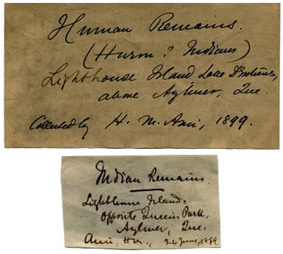 Human Remains.
(Huron? Indians)
Lighthouse Island, Lake Deschenes,
above Aylmer, Que.
Collected by H. M. Ami, 1899.
Indian Remains
Lighthouse Island.
Opposite Queen's Park,
Aylmer, Que.
Ami, H.M., June, 1899